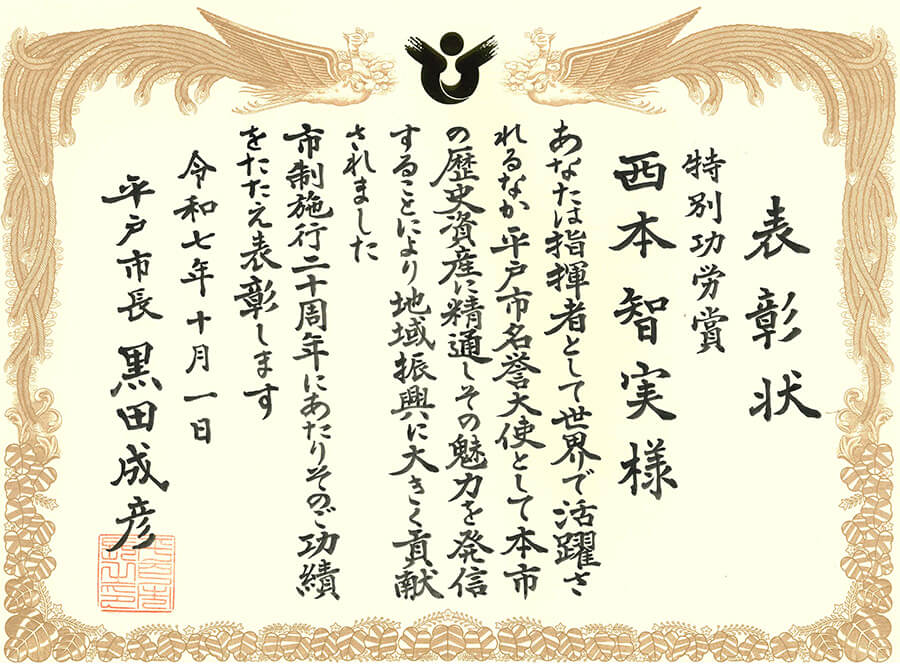 表彰状
特別功労賞
西本智実様
あなたは指揮者として世界で活躍さ
れるなか平戸市名誉大使として本市
の歴史資産に精通しその魅力を発信
することにより地域振興に大きく貢献
されました
市制施行二十周年にあたりそのご功績
をたたえ表彰します
令和七年十月一日
平戸市長 黒田成彦